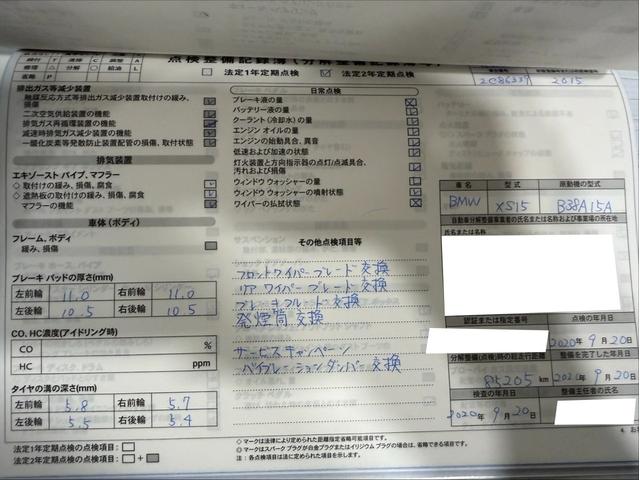 点検整備記録簿(分解整備記録簿)
法定1年定期点検 法定2年定期点検
2C86339 2015
排出ガス等減少装置
触媒反応方式等排出ガス減少装置取付けの緩み、
損傷
二次空気供給装置の機能
排気ガス再循環装置の機能
減速時排気ガス減少装置の機能
一酸化炭素等発散防止装置配管の損傷、取付状態
排気装置
エキゾースト パイプ、マフラー
◇ 取付けの緩み、損傷、腐食
◇ 遮熱板の取付けの緩み、損傷、腐食
マフラーの機能
車体(ボディ)
フレーム、ボディ
緩み、損傷
ブレーキ パッドの厚さ(mm)
左前輪 11.0 右前輪 11.0
左後輪 10.5 右後輪 10.5
CO、HC濃度(アイドリング時)
CO %
HC ppm
タイヤの溝の深さ(mm)
左前輪 5.8 右前輪 5.7
左後輪 5.5 右後輪 5.4
法定1年定期点検の点検項目:
法定2年定期点検の点検項目: +
日常点検
ブレーキ液の量
バッテリー液の量
クーラント(冷却水)の量
エンジン オイルの量
エンジンの始動具合、異音
低速および加速の状態
灯火装置と方向指示器の点灯/点滅具合、
汚れおよび損傷
ウィンドウ ウォッシャーの量
ウィンドウ ウォッシャーの噴射状態
ワイパーの払拭状態
その他点検項目等
フロントワイパーブレード交換
リアワイパーブレード交換
ブレーキフルード交換
発煙筒交換
サービスキャンペーン
バイブレーションダンパー交換
◇ マークは法律により定められた距離指定省略可能項目です。
◎ マークはスパーク プラグが白金プラグまたはイリジウム プラグの場合は、省略できる項目です。
注:各点検項目は法に定められた項目を示します。
車名 型式 原動機の型式
BMW XS15 B38A15A
自動車分解整備事業者の氏名または名称および事業場の所在地
氏名または名称
認証または指定番号 点検の年月日
2020年 9月20日
分解整備(点検)時の総走行距離 整備を完了した年月日
85205 km 202 年 9月20日
検査の年月日 整備主任者の氏名
2020年 9月20日